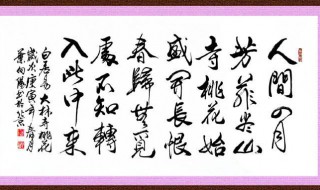 人間四月
芳菲尽山
寺桃花始
盛開長恨
春歸無覓
處不知轉
入此中来
白居易大林寺桃花
歲次庚寅年春月